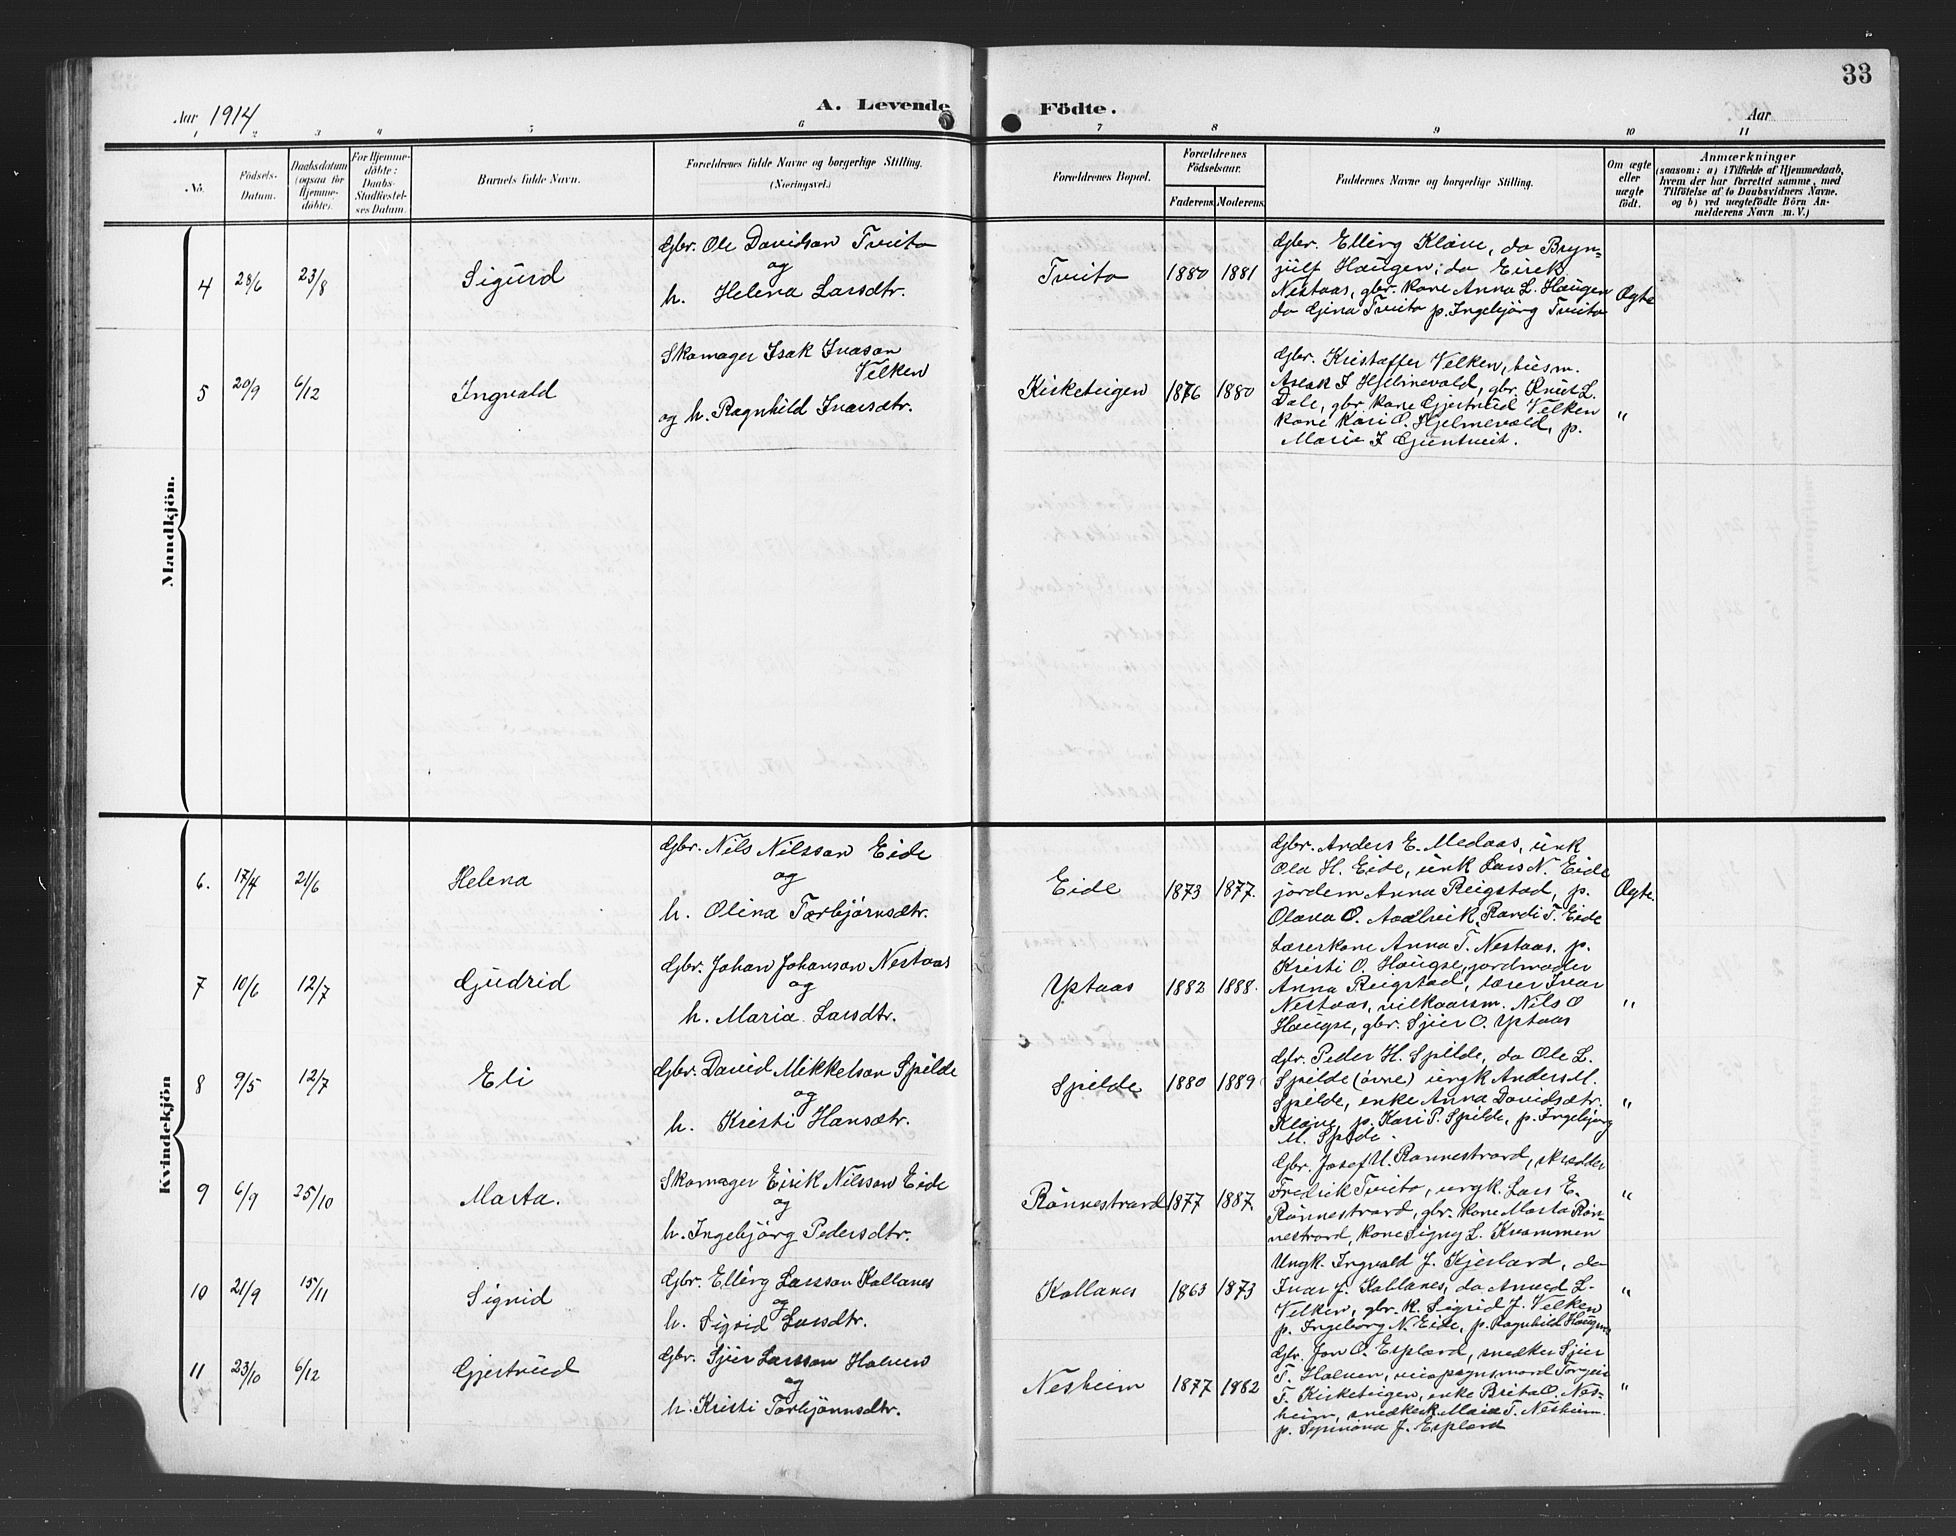 33
Aar 1914
A. Levende Födte.
Aar
1 2 3 4 5 6 7 8 9 10 11
No.
Födsels-Datum.
Daabsdatum (ogsaa for Hjemme-döbte).
For Hjemme-döbte: Daabs-Stadfæstel-ses Datum.
Barnets fulde Navn.
Forældrenes fulde Navne og borgerlige Stilling. (Næringsvei.)
Forældrenes Bopæl.
Forældrenes Födselsaar.
Faderens. Moderens.
Faddernes Navne og borgerlige Stilling.
Om ægte eller uægte födt.
Anmærkninger
(saasom: a) i Tilfælde af Hjemmedaab,
hvem der har forrettet samme, med
Tilföielse af to Daabsvidners Navne.
og b) ved uægtefödte Börn An-
melderens Navn m. V.)
Mandkjön.
4 28/6 23/8 Sigurd
Gbr. Ole Davidson Tveito
og
h. Helena Larsdtr.
Tveito 1880 1881
Gbr. Elling Kløve, do Bryn-
julf Haugen; do Eirek
Nestaas, gbr. kone Anna L. Haugen
do Gjina Tveito p. Ingebjörg Tveito
Ægte
5 20/9 6/12 Ingvald
Skomager Isak Ivarson
Velken
og h. Ragnhild Ivarsdtr.
Kirketeigen 1876 1880
Gbr. Kristoffer Velken, husm.
Aslak I Hjelmevold, gbr. Knut L.
Dale, gbr. kone Gjertrud Velken
kone Kari O. Hjelmevold, p.
Marie I
"
Kvindekjön
6. 17/4 21/6 Helena
Gbr. Nils Nilsson Eide
og
h. Olina Torbjørnsdtr.
Eide 1873 1877.
Gbr. Anders E. Medaas, unk
Ola H. Eide, unk Lars N. Eide
jordem Anna Reigstad, p.
Olava O. Aalvik, Randi T. Eide
Ægte.
7 10/6 12/7 Gudrid
Gbr. Johan Johanson Nestaas
og
h. Maria Larsdtr.
Ystaas 1882 1888.
Lærerkone Anna T. Nestaas, p.
Kristi O. Haugse, jordmoder
Anna Reigstad, lærer Ivar
Nestaas, vilkaarsm. Nils O
Haugse, gbr. Sjur O. Ystaas
"
8 9/5 12/7 Eli
Gbr. David Mikkelson Spilde
og
h. Kristi Hansdtr.
Spilde 1880 1889
Gbr. Peder H. Spilde, do Ole L.
Spilde (øvre) ungk Anders M.
Spilde, enke Anna Davidsdtr.
Kløve, p. Kari P. Spilde, p. Ingebjörg
M. Spilde.
"
9 6/9 25/10 Marta.
Skomager Eirik Nilsson Eide
og
h. Ingebjörg Pedersdtr.
Rönnestrand 1877 1887.
Gbr. Josef U. Rønnestrand, skrædder
Fredrik Tveito, ungk. Lars E.
Rönnestrand, gbr. kone Marta Rön-
nestrand, kone Signy L. Kvammen
"
10 21/9 15/11 Sigrid
Gbr. Elling Larsson Kollanes
og
h. Sigrid Larsdtr.
Kollanes 1863 1873
Ungk. Ingvald J. Kjerland, do
Ivar J. Kollanes, do Amund L.
Velken, gbr. k. Sigrid J. Velken
p. Ingeborg N. Eide, p. Ragnhild
"
11 23/10 6/12 Gjertrud
Gbr. Sjur Larsson Halven
og
h. Kristi Torbjörnsdtr.
Nesheim 1877 1882
Gbr. Jon O. Espland, snedker Sjur
T. Halven, Torgeir
T. Kirketeigen, enke Brita O. Nes-
heim, snedkerk. Maria T. Nesheim.
p. J. Espland
"